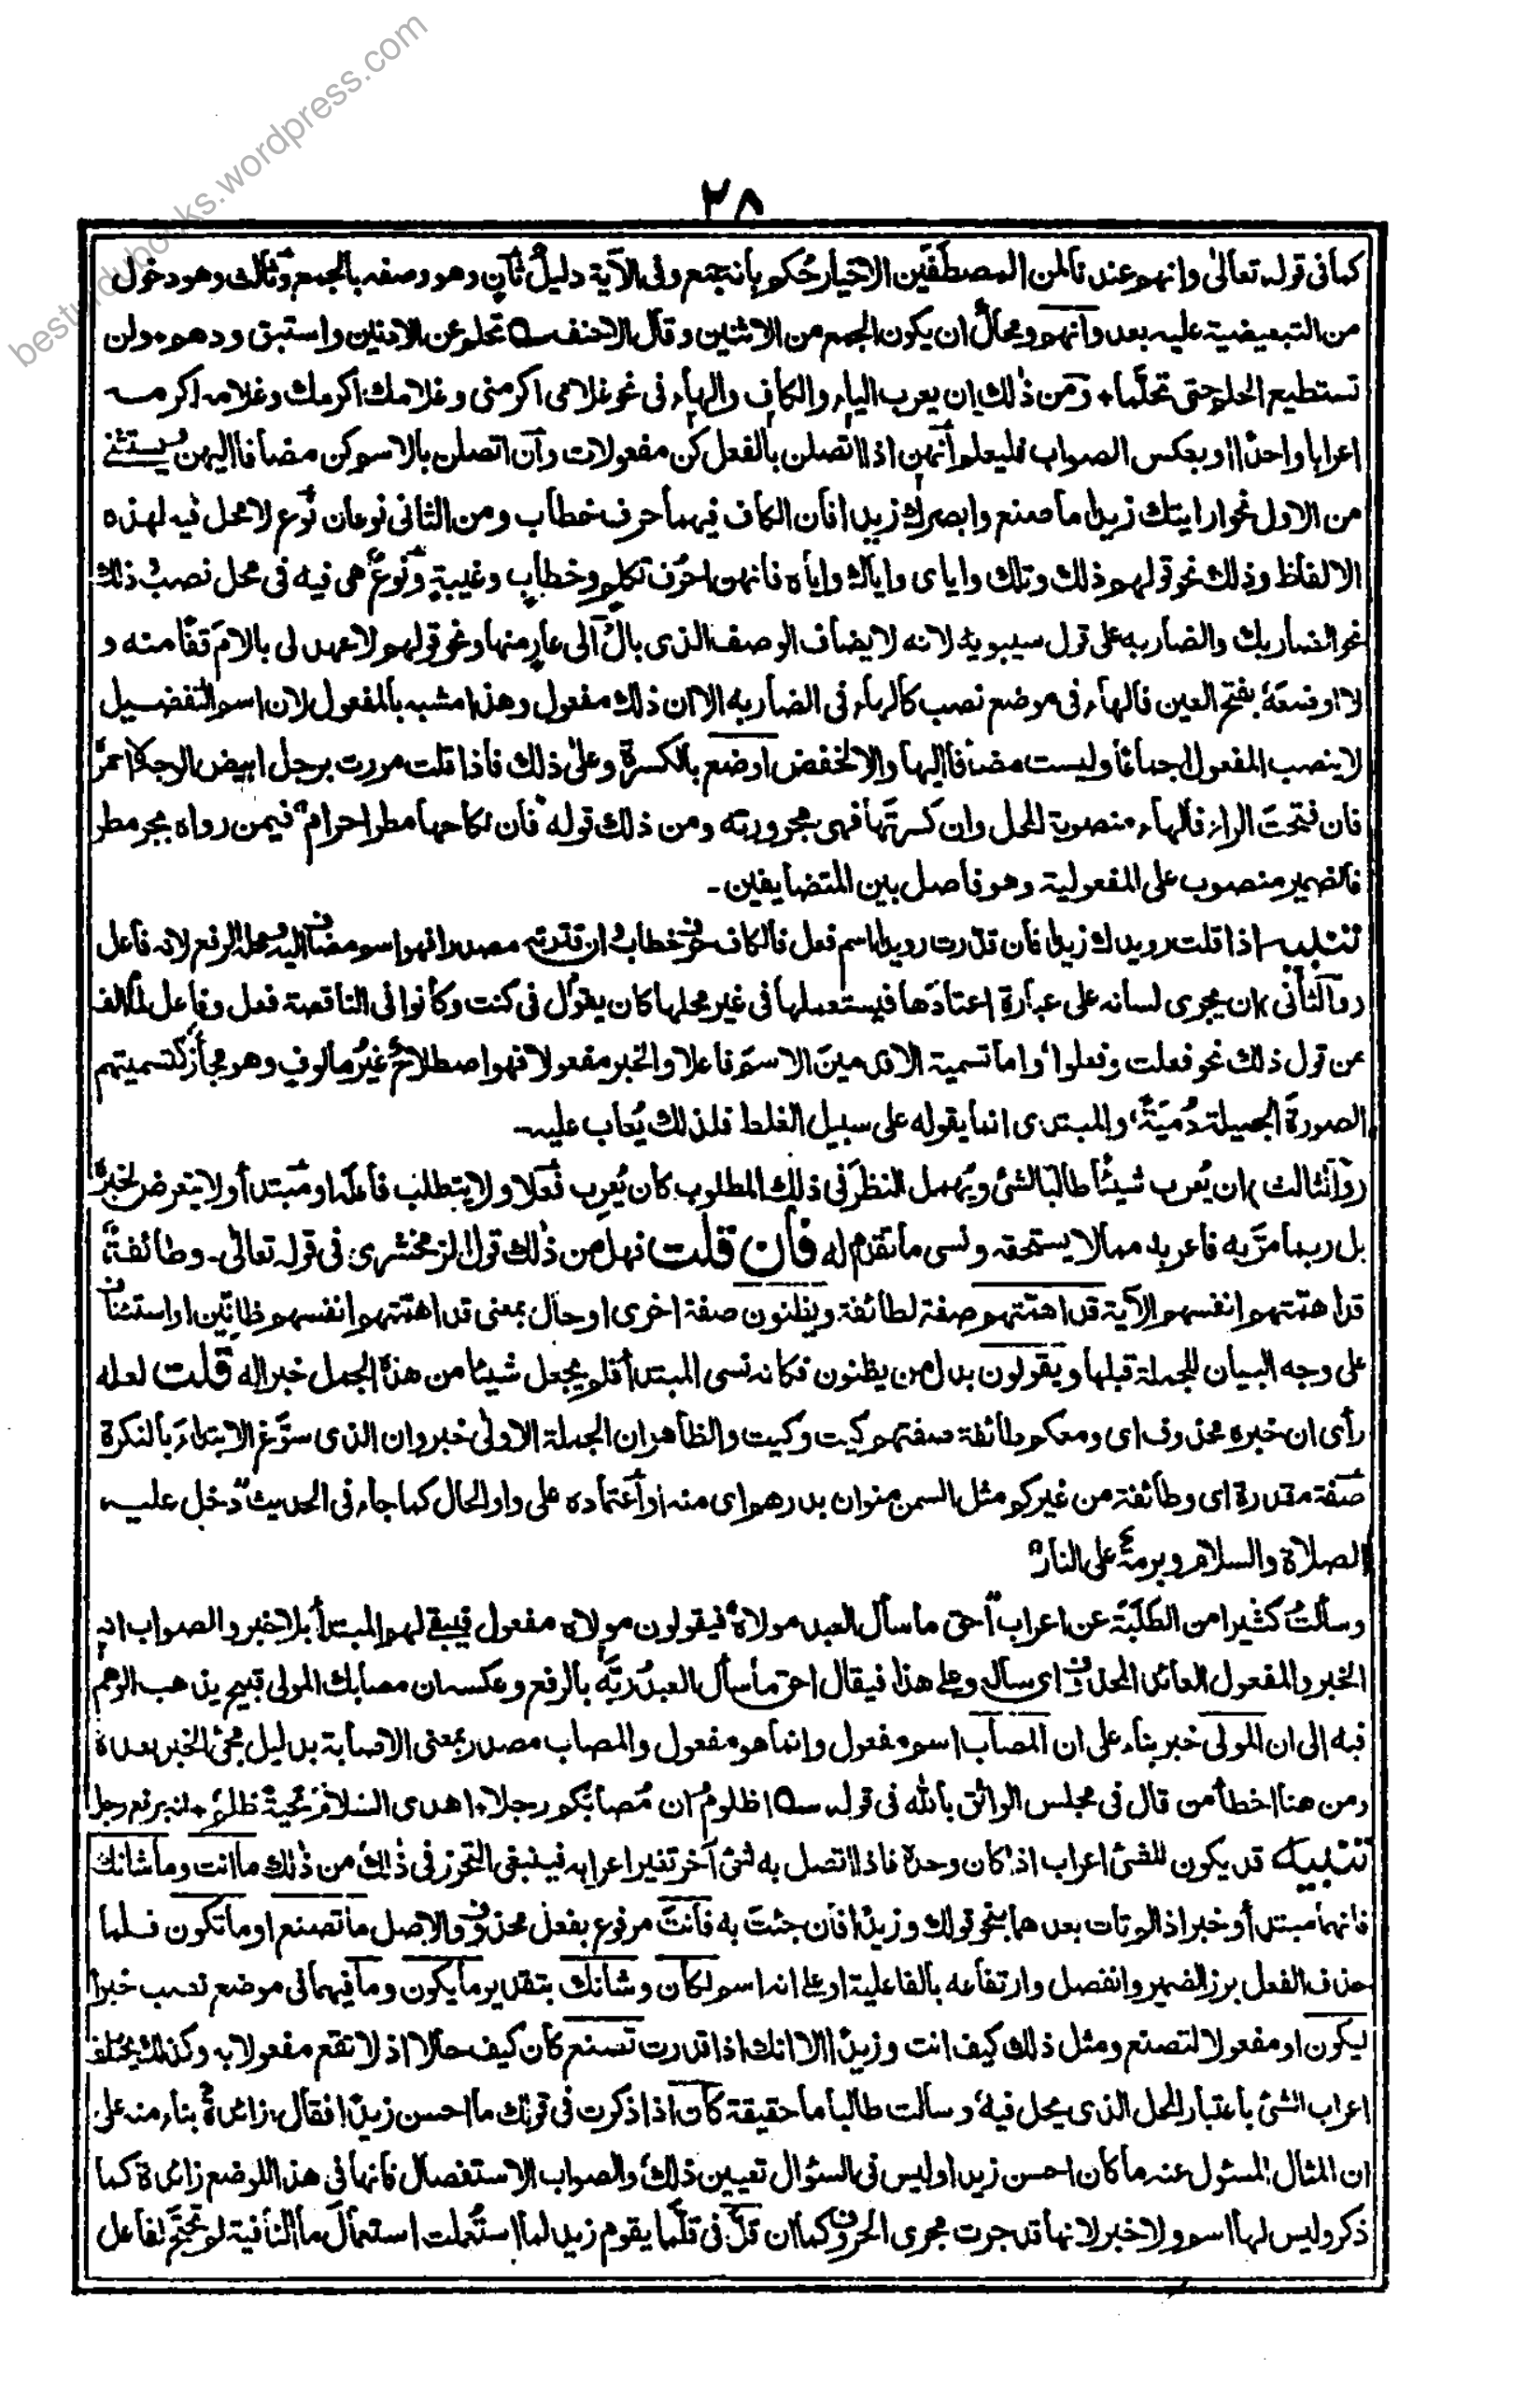 besturdubooks.wordpress.com
٢٨
كما فى قوله تعالىٰ وانهم عندنا لمن المصطفَين الاخيار حُكم بأنه جمع وفى الآية دليلٌ ثانٍ وهو وصفه بالجمع وثالث وهو دخول
من التبعيضية عليه بعد وانهم ومحالٌ ان يكون الجمع من الاثنين وقال الاحنف ؎ تحلم عن الادنين واستبق ودهم ٭ ولن
تستطيع الحلم حتى تحلَّما ٭ ومن ذٰلك ان يعرب الياء والكاف والهاء فى نحو غلامى اكرمنى وغلامك اكرمك وغلامه اكرمه
اعرابا واحدًا او بعكس الصواب فليعلم انهن اذا اتصلن بالفعل كن مفعولات وان اتصلن بالاسم كن مضافا اليهن ويستثنى
من الاول نحو ارايتك زيدا ما صنع وابصرك زيدا فان الكاف فيهما حرف خطاب ومن الثانى نوعان نوع لا محل فيه لهذه
الالفاظ وذٰلك نحو قولهم ذلك وتلك واياى واياك واياه فانهن احرف تكلم وخطاب وغيبة ونوع هى فيه فى محل نصب وذٰلك
نحو الضاربك والضاربه على قول سيبويه لانه لا يضاف الوصف الذى بال الى عارٍ منها ونحو قولهم لا عهد لى بالام قفًا منه و
لا اوضعَهٗ بفتح العين فالهاء فى موضع نصب كالهاء فى الضاربه الا ان ذلك مفعول وهذا مشبه بالمفعول لان اسم التفضيل
لا ينصب المفعول اجماعًا وليست مضافا اليها والا لخفض اوضع بالكسرة وعلىٰ ذلك فاذا قلت مررت برجل ابيض الوجه لا احمرَه
فان فتحتَ الراء فالهاء منصوبة المحل وان كسرتَها فهى مجرورته ومن ذلك قوله فان نكاحها مطر احرام فيمن رواه بجر مطر
فالضمير منصوب على المفعولية وهو فاصل بين المتضايفين۔
تنبيه اذا قلت رويدك زيدا فان قدّرت رويدا اسم فعل فالكاف حرف خطاب وان قدرته مصدرا فهو اسم مضاف اليه ومحله الرفع لانه فاعل
(والثانى) ان يجرى لسانه على عبارة اعتادَها فيستعملها فى غير محلها كان يقول فى كنت وكانوا فى الناقصة فعل وفاعل لما الف
من قول ذلك نحو فعلت وفعلوا، واما تسمية الاقدمين الاسم فاعلا والخبر مفعولا فهو اصطلاحٌ غيرُ مالوفٍ وهو مجاز كتسميتهم
الصورةَ الجميلة دُميَةً، والمبتدى انما يقوله على سبيل الغلط فلذلك يُعاب عليه۔
(والثالث) ان يُعرب شيئًا طالبًا لشئ ويُهمل النظر فى ذلك المطلوب كان يُعرِب فعلا ولا يتطلب فاعله او مبتدأ ولا يتعرض لخبره
بل ربما مرّ به فاعربه بما لا يستحقه ونسى ما تقدم له فان قلت فهل من ذٰلك قول الزمخشرى فى قوله تعالىٰ۔ وطائفة
قد اهمّتهم انفسهم الآية قد اهمتهم صفة لطائفة ويظنون صفة اخرى او حال بمعنى قد اهمّتهم انفسهم ظانّين او استئناف
على وجه البيان للجملة قبلها ويقولون بدل من يظنون فكانه نسى المبتدأ فلم يجعل شيئا من هذه الجمل خبرا له قلت لعله
رأى ان خبره محذوف اى ومعكم طائفة صفتهم كيت وكيت والظاهر ان الجملة الاولىٰ خبر وان الذى سوّغ الابتداءَ بالنكرة
صفة مقدرة اى وطائفة من غيركم مثل السمن منوان بدرهم اى منه او اعتماده على واو الحال كما جاء فى الحديث ”دخل عليه
الصلاة والسلام وبرمةٌ على النار“
وسألتُ كثيرا من الطلبَة عن اعراب ”احق ما سأل العبد مولاه“ فيقولون مولاه مفعول فيبقى لهم المبتدأ بلا خبر والصواب انه
الخبر والمفعول العائد المحذوف اى سأله وعلى هذا فيقال احق ما سأل العبدُ ربَّه بالرفع وعكسه ان مصابك المولى قبيح يذهب الوهم
فيه الى ان المولى خبر بناء على ان المصاب اسم مفعول وانما هو مفعول والمصاب مصدر بمعنى الاصابة بدليل مجئ الخبر بعده
ومن هنا اخطأ من قال فى مجلس الواثق بالله فى قوله ؎ اظلومُ ان مُصابكم رجلا ٭ اهدى السلام تحيةً ظلم ٭ انه برفع رجل
تنبيه قد يكون للشئ اعراب اذا كان وحده فاذا اتصل به شئ آخر تغير اعرابه فينبغى التحرز فى ذلك من ذٰلك ما انت وما شانك
فانهما مبتدأ وخبر اذا لم تات بعدهما بنحو قولك وزيدًا فان جئتَ به فانتَ مرفوع بفعل محذوف والاصل ما تصنع او ما تكون فلما
حذف الفعل برز الضمير وانفصل وارتفاعه بالفاعلية او على انه اسم لكان وشانك بتقدير ما يكون وما فيهما فى موضع نصب خبرا
ليكون او مفعولا لتصنع ومثل ذلك كيف انت وزيدًا الا انك اذا قدرت تصنع كان كيف حالا اذ لا تقع مفعولا به وكذلك يختلف
اعراب الشئ باعتبار المحل الذى يحل فيه، وسألت طالبا ما حقيقة كان اذا ذكرت فى قولك ما احسن زيدًا فقال، زائدة بناء منه على
ان المثال المسئول عنه ما كان احسن زيدا وليس فى السؤال تعيين ذلك، والصواب الاستفصال فانها فى هذا الموضع زائدة كما
ذكر وليس لها اسم ولا خبر لانها قد جرت مجرى الحروف كما ان قلّ فى قلّما يقوم زيد لما استُعملت استعمالَ ما النافية لم تحتج لفاعل